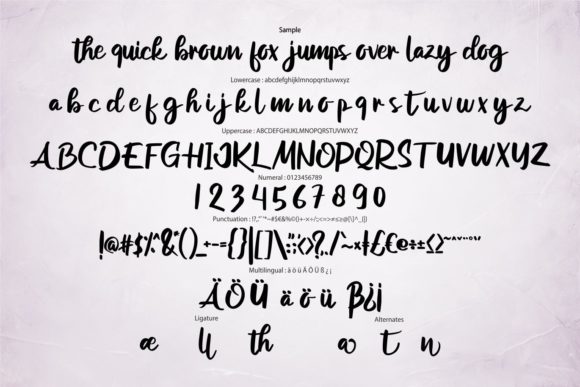 Sample
the quick brown fox jumps over lazy dog
Lowercase : abcdefghijklmnopqrstuvwxyz
a b c d e f g h i j k l m n o p q r s t u v w x y z
Uppercase : ABCDEFGHIJKLMNOPQRSTUVWXYZ
ABCDEFGHIJKLMNOPQRSTUVWXYZ
Numeral : 0123456789
1 2 3 4 5 6 7 8 9 0
Punctuation :
!@#$%^&*()_+-={}|[]\:;<>?,./
Multilingual : ä ö ü Ä Ö Ü ß ¿ ¡
ÄÖÜ ä ö ü ß¿¡
Ligature Alternates
æ ll th a t n